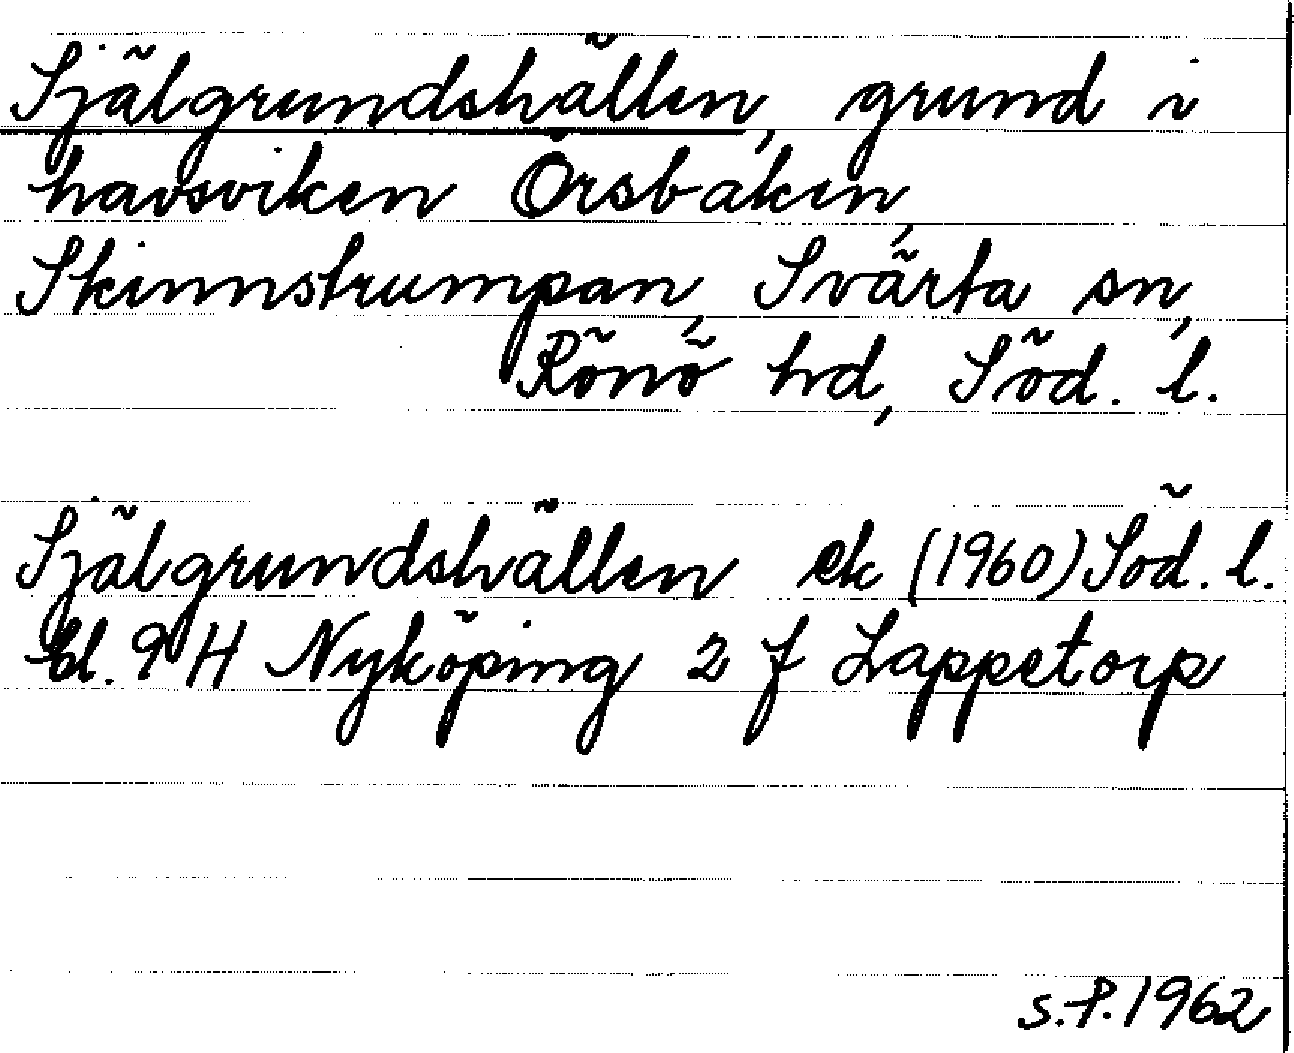 Själgrundshällen, grund i
havsviken Örsbaken,
Skinnstrumpan, Svärta sn,
Rönö hd, Söd. l.
Själgrundshällen ek (1960) Söd. l.
bl. 9 H Nyköping 2 f Lappetorp
S.P. 1962